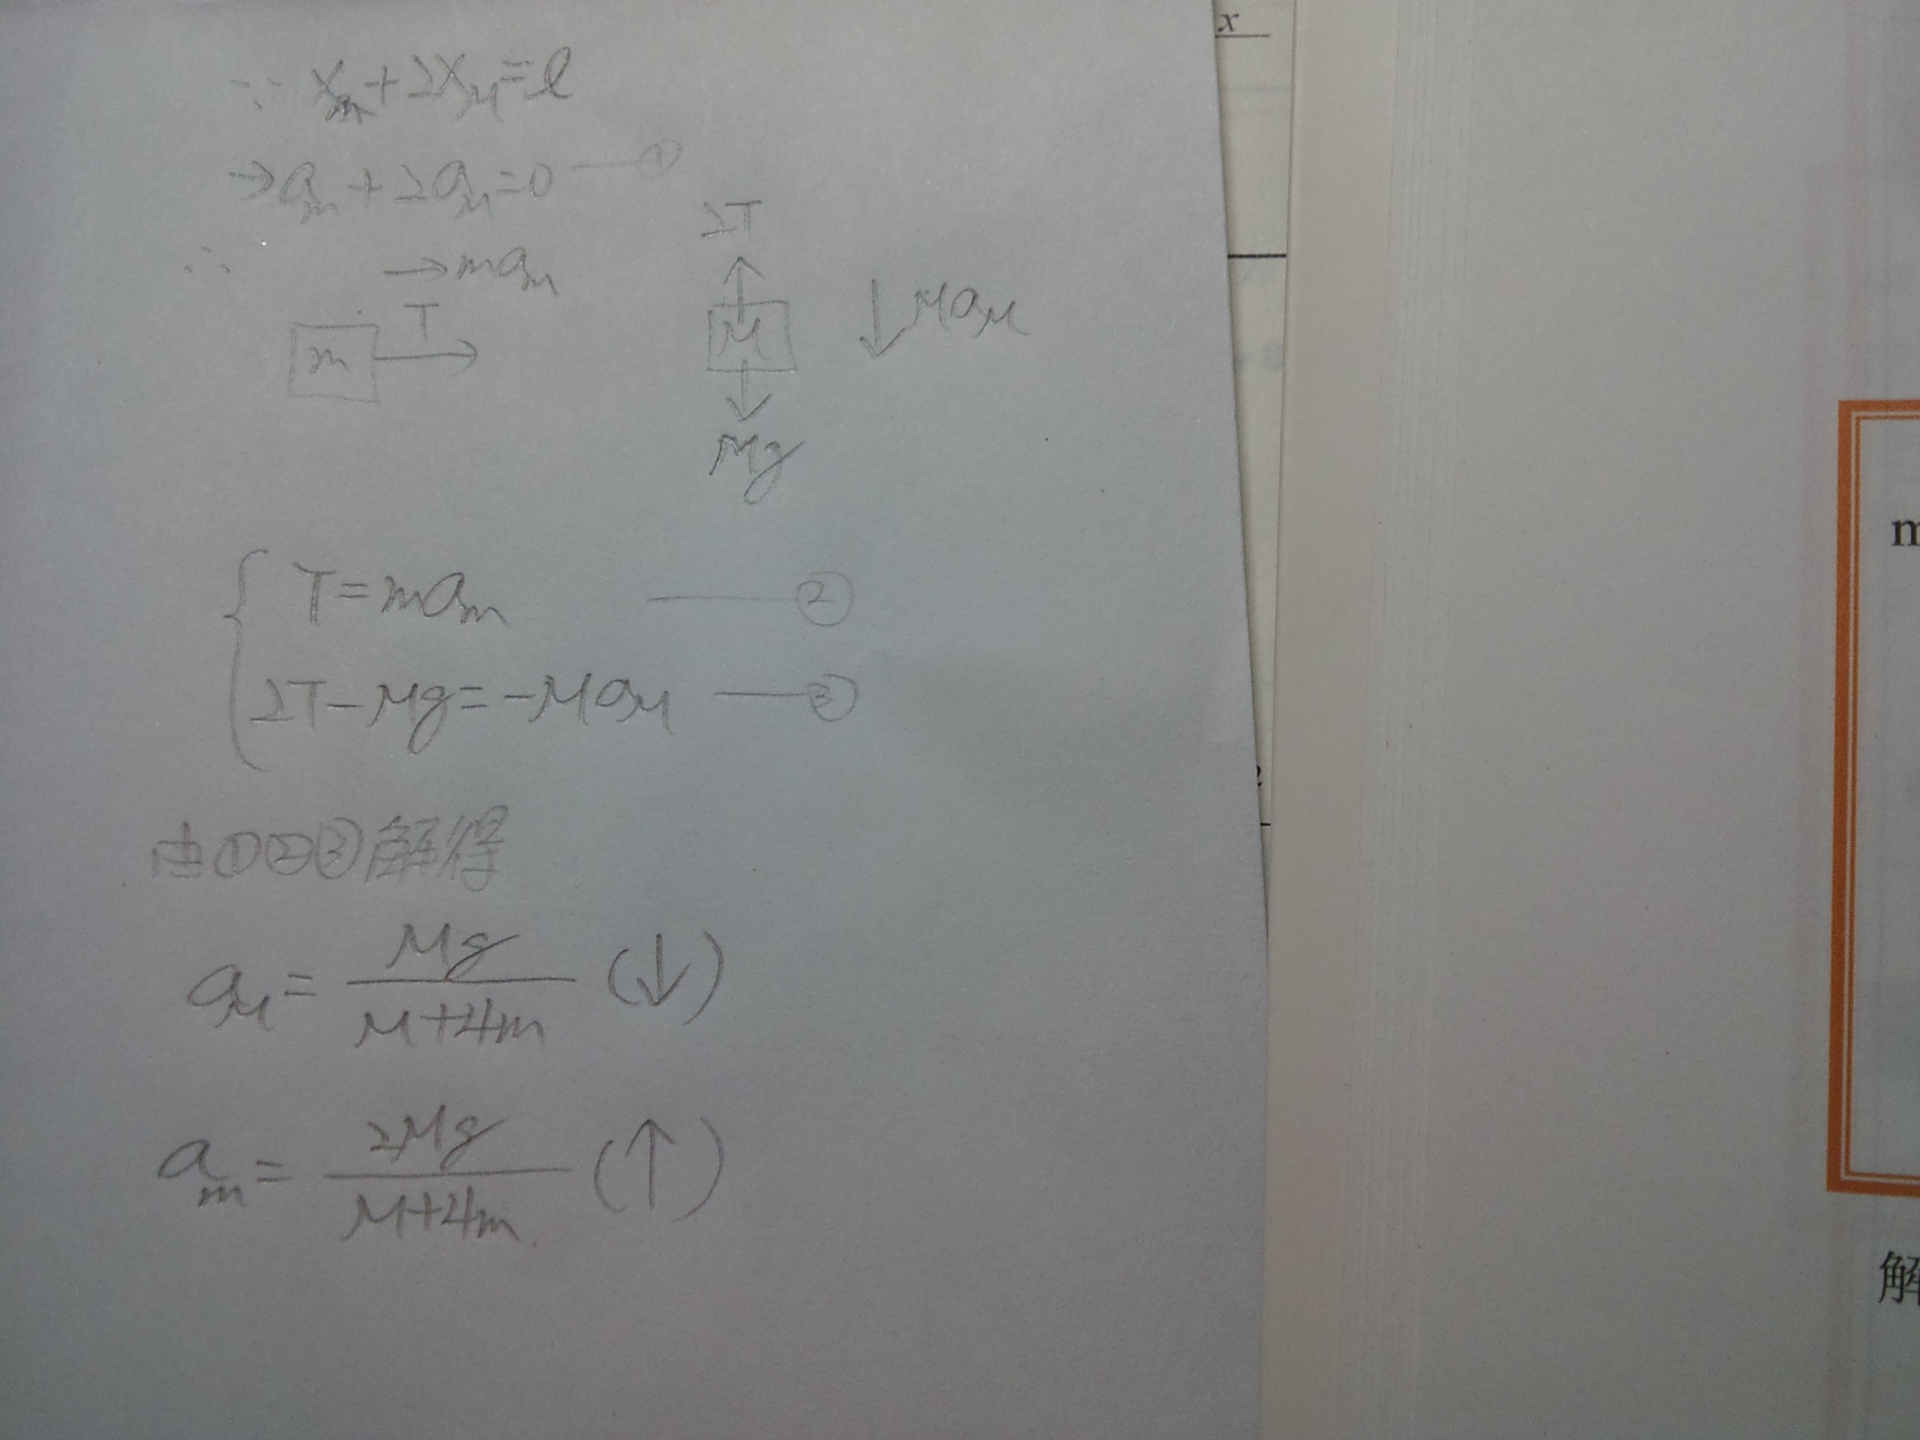 ∵ xₘ+2x_M=ℓ
→aₘ+2a_M=0 ——①
∴
→maₘ
T
m
2T
M
Mg
↓Ma_M
T=maₘ ——②
2T-Mg=-Ma_M ——③
由①②③解得
a_M = Mg/(M+4m) (↓)
aₘ = 2Mg/(M+4m) (↑)
x
m
解